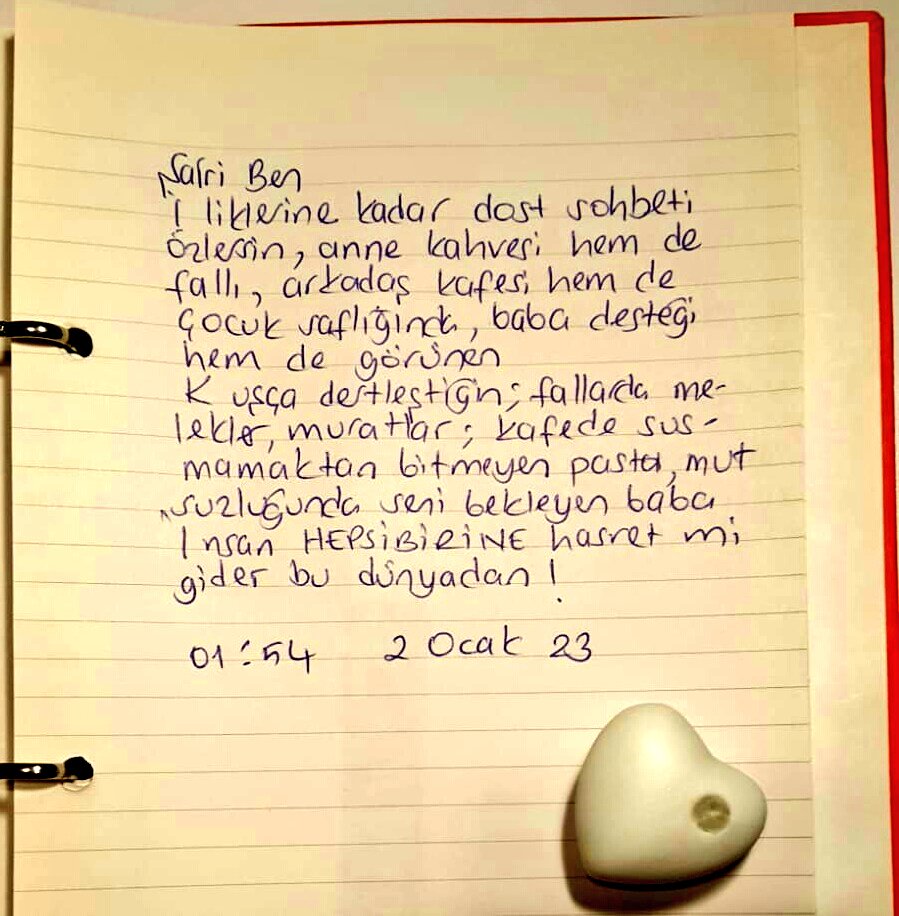 Safri Ben
İliklerine kadar dost sohbeti
özlersin, anne kahvesi hem de
fallı, arkadaş kafesi hem de
çocuk saflığında, baba desteği
hem de görünen
Kuşça dertleştiğin; fallarda me-
lekler, muratlar; kafede sus-
mamaktan bitmeyen pasta, mut
suzluğunda seni bekleyen baba
Insan HEPSİBİRİNE hasret mi
gider bu dünyadan!
01:54 2 Ocak 23